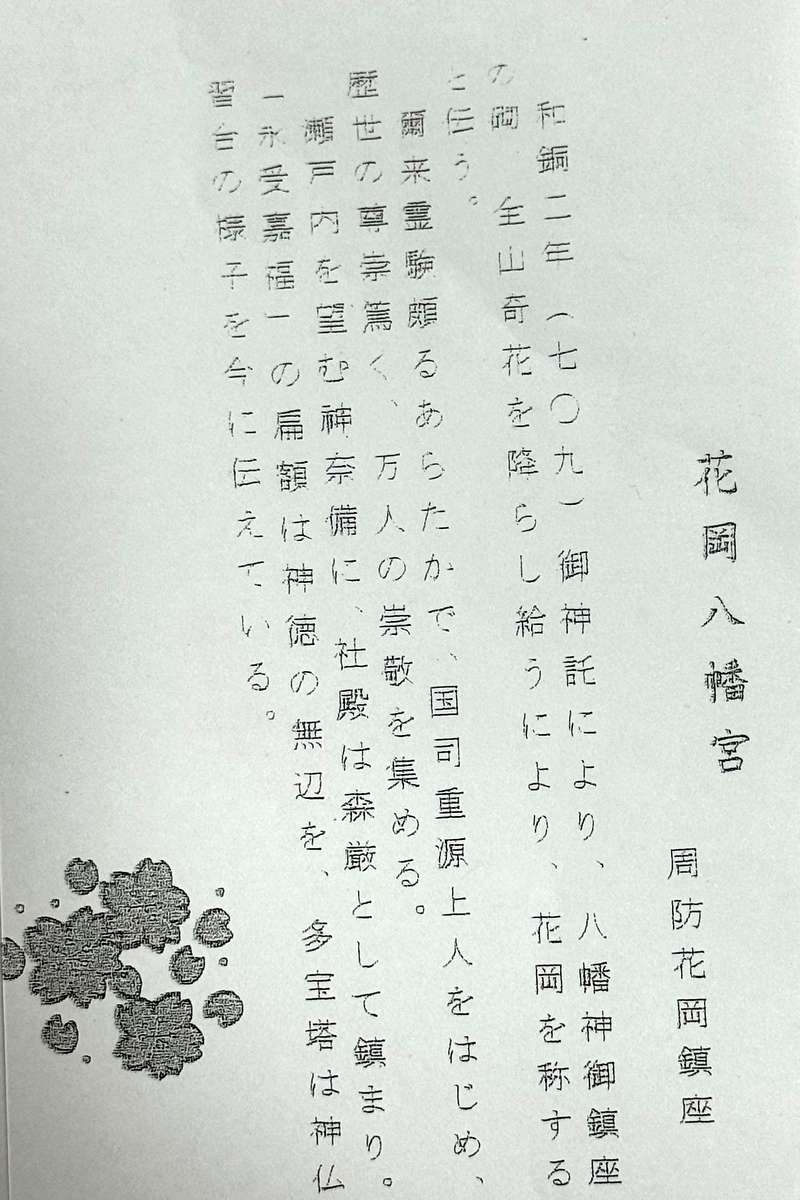 花岡八幡宮
周防花岡鎮座
和銅二年(七〇九)御神託により、八幡神御鎮座
の岡、全山奇花を降らし給うにより、花岡を称する
と伝う。
爾来霊験頗るあらたかで、国司重源上人をはじめ、
歴世の尊崇篤く、万人の崇敬を集める。
瀬戸内を望む神奈備に、社殿は森厳として鎮まり。
「永受嘉福」の扁額は神徳の無辺を、多宝塔は神仏
習合の様子を今に伝えている。